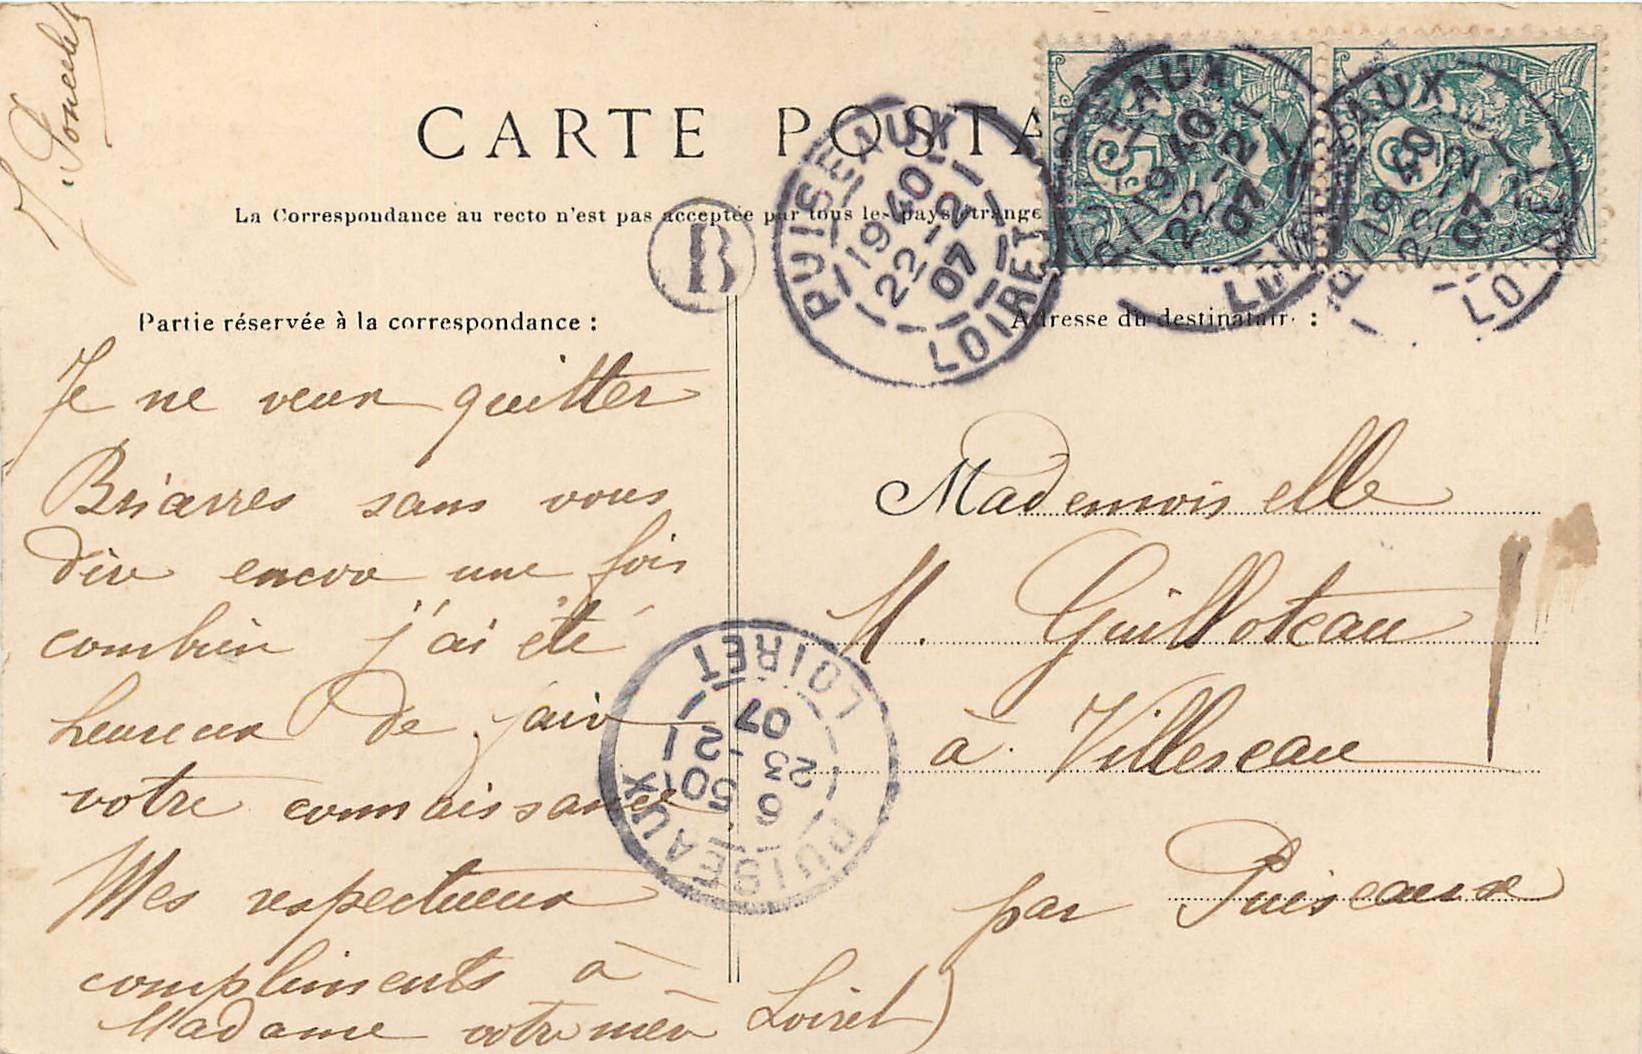 CARTE POSTA
La Correspondance au recto n'est pas acceptée par tous les pays étrange
B
PUISEAUX
19 40
22 - 2
07
LOIRET
PUISEAUX
19 40
22 - 2
07
LOIRET
PUISEAUX
19 40
22 - 2
07
LOIRET
5
5
Partie réservée à la correspondance :
Je ne veux quitter
Briarres sans vous
dire encore une fois
combien j'ai été
heureux de faire
votre connaissance,
Mes respectueux
compliments à
Madame votre mère
Adresse du destinatair :
Mademoiselle
M. Guilloteau
à Villereau
par Puiseaux
Loiret)
PUISEAUX
6 50
23 - 2
07
LOIRET